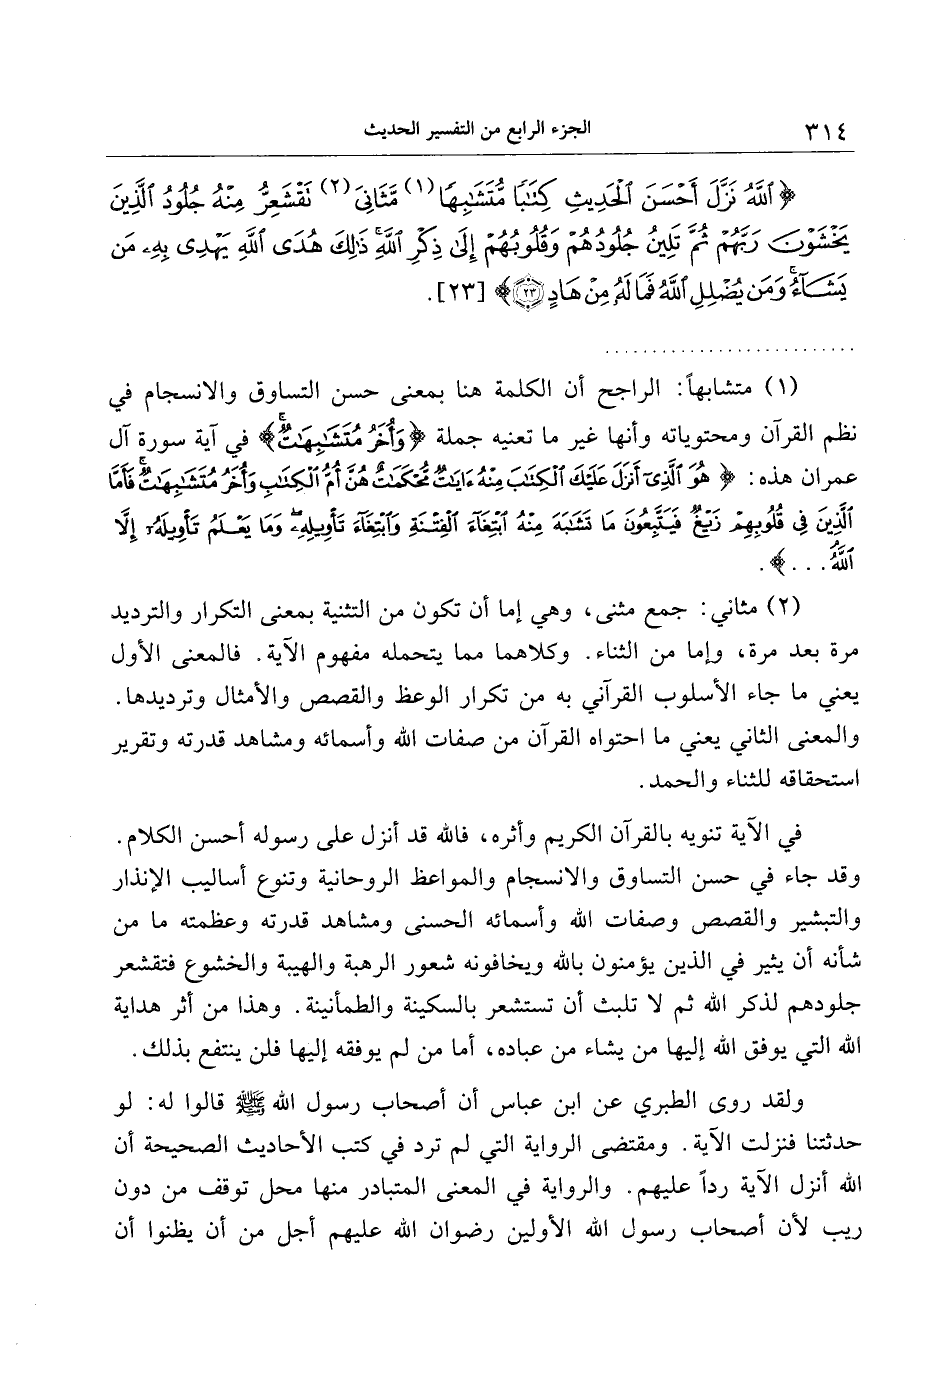 ٣١٤
الجزء الرابع من التفسير الحديث
﴿ ٱللَّهُ نَزَّلَ أَحْسَنَ ٱلْحَدِيثِ كِتَٰبًا مُّتَشَٰبِهًا (١) مَّثَانِيَ (٢) تَقْشَعِرُّ مِنْهُ جُلُودُ ٱلَّذِينَ
يَخْشَوْنَ رَبَّهُمْ ثُمَّ تَلِينُ جُلُودُهُمْ وَقُلُوبُهُمْ إِلَىٰ ذِكْرِ ٱللَّهِۚ ذَٰلِكَ هُدَى ٱللَّهِ يَهْدِى بِهِۦ مَن
يَشَآءُۚ وَمَن يُضْلِلِ ٱللَّهُ فَمَا لَهُۥ مِنْ هَادٍ ٢٣﴾ [٢٣].
...........................
(١) متشابهاً: الراجح أن الكلمة هنا بمعنى حسن التساوق والانسجام في
نظم القرآن ومحتوياته وأنها غير ما تعنيه جملة ﴿وَأُخَرُ مُتَشَٰبِهَٰتٌۖ﴾ في آية سورة آل
عمران هذه: ﴿ هُوَ ٱلَّذِىٓ أَنزَلَ عَلَيْكَ ٱلْكِتَٰبَ مِنْهُ ءَايَٰتٌ مُّحْكَمَٰتٌ هُنَّ أُمُّ ٱلْكِتَٰبِ وَأُخَرُ مُتَشَٰبِهَٰتٌۖ فَأَمَّا
ٱلَّذِينَ فِى قُلُوبِهِمْ زَيْغٌ فَيَتَّبِعُونَ مَا تَشَٰبَهَ مِنْهُ ٱبْتِغَآءَ ٱلْفِتْنَةِ وَٱبْتِغَآءَ تَأْوِيلِهِۦۗ وَمَا يَعْلَمُ تَأْوِيلَهُۥٓ إِلَّا
ٱللَّهُ ... ﴾.
(٢) مثاني: جمع مثنى، وهي إما أن تكون من التثنية بمعنى التكرار والترديد
مرة بعد مرة، وإما من الثناء. وكلاهما مما يتحمله مفهوم الآية. فالمعنى الأول
يعني ما جاء الأسلوب القرآني به من تكرار الوعظ والقصص والأمثال وترديدها.
والمعنى الثاني يعني ما احتواه القرآن من صفات الله وأسمائه ومشاهد قدرته وتقرير
استحقاقه للثناء والحمد.
في الآية تنويه بالقرآن الكريم وأثره، فالله قد أنزل على رسوله أحسن الكلام.
وقد جاء في حسن التساوق والانسجام والمواعظ الروحانية وتنوع أساليب الإنذار
والتبشير والقصص وصفات الله وأسمائه الحسنى ومشاهد قدرته وعظمته ما من
شأنه أن يثير في الذين يؤمنون بالله ويخافونه شعور الرهبة والهيبة والخشوع فتقشعر
جلودهم لذكر الله ثم لا تلبث أن تستشعر بالسكينة والطمأنينة. وهذا من أثر هداية
الله التي يوفق الله إليها من يشاء من عباده، أما من لم يوفقه إليها فلن ينتفع بذلك.
ولقد روى الطبري عن ابن عباس أن أصحاب رسول الله ﷺ قالوا له: لو
حدثتنا فنزلت الآية. ومقتضى الرواية التي لم ترد في كتب الأحاديث الصحيحة أن
الله أنزل الآية رداً عليهم. والرواية في المعنى المتبادر منها محل توقف من دون
ريب لأن أصحاب رسول الله الأولين رضوان الله عليهم أجل من أن يظنوا أن